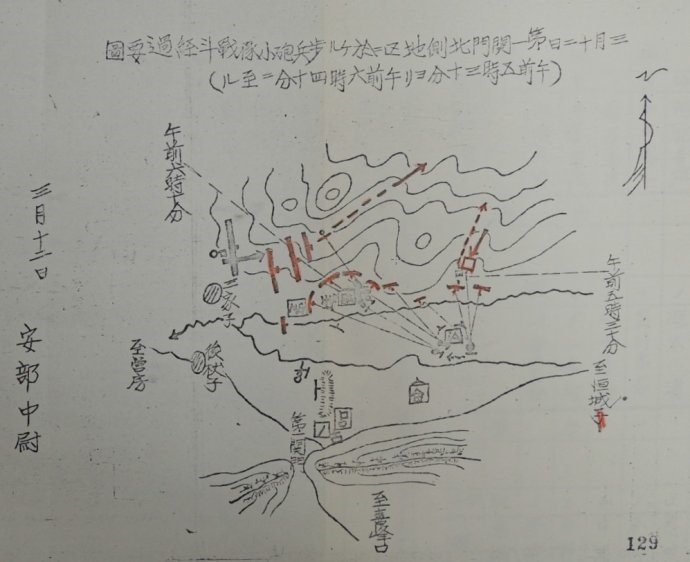 三月十二日第一関門北側地区ニ於ケル歩兵砲小隊戦斗経過要圖
(午前五時三十分ヨリ午前六時四十分ニ至ル)
午前六時十分
三月十二日 安部中尉
三家子
午前五時三十分
至営房
至恒城子
第一関門
至喜峰口
129